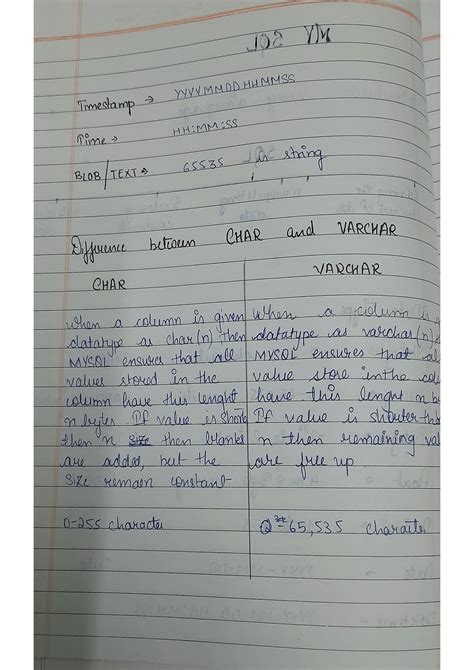 MY SQL
Timestamp → YYYYMMDDHHMMSS
Time → HH:MM:SS
BLOB/TEXT → 65535 in string
Difference between CHAR and VARCHAR
CHAR
When a column is given
datatype as char(n) then
MYSQL ensures that all
values stored in the
column have this lenght
n bytes. If value is short
then n then blanks
are added, but the
size remain constant
0-255 character
VARCHAR
When a column is
datatype as varchar(n)
MYSQL ensures that
value store in the
have this lenght n
If value is shorter
n then remaining
are free up.
0-65,535 character